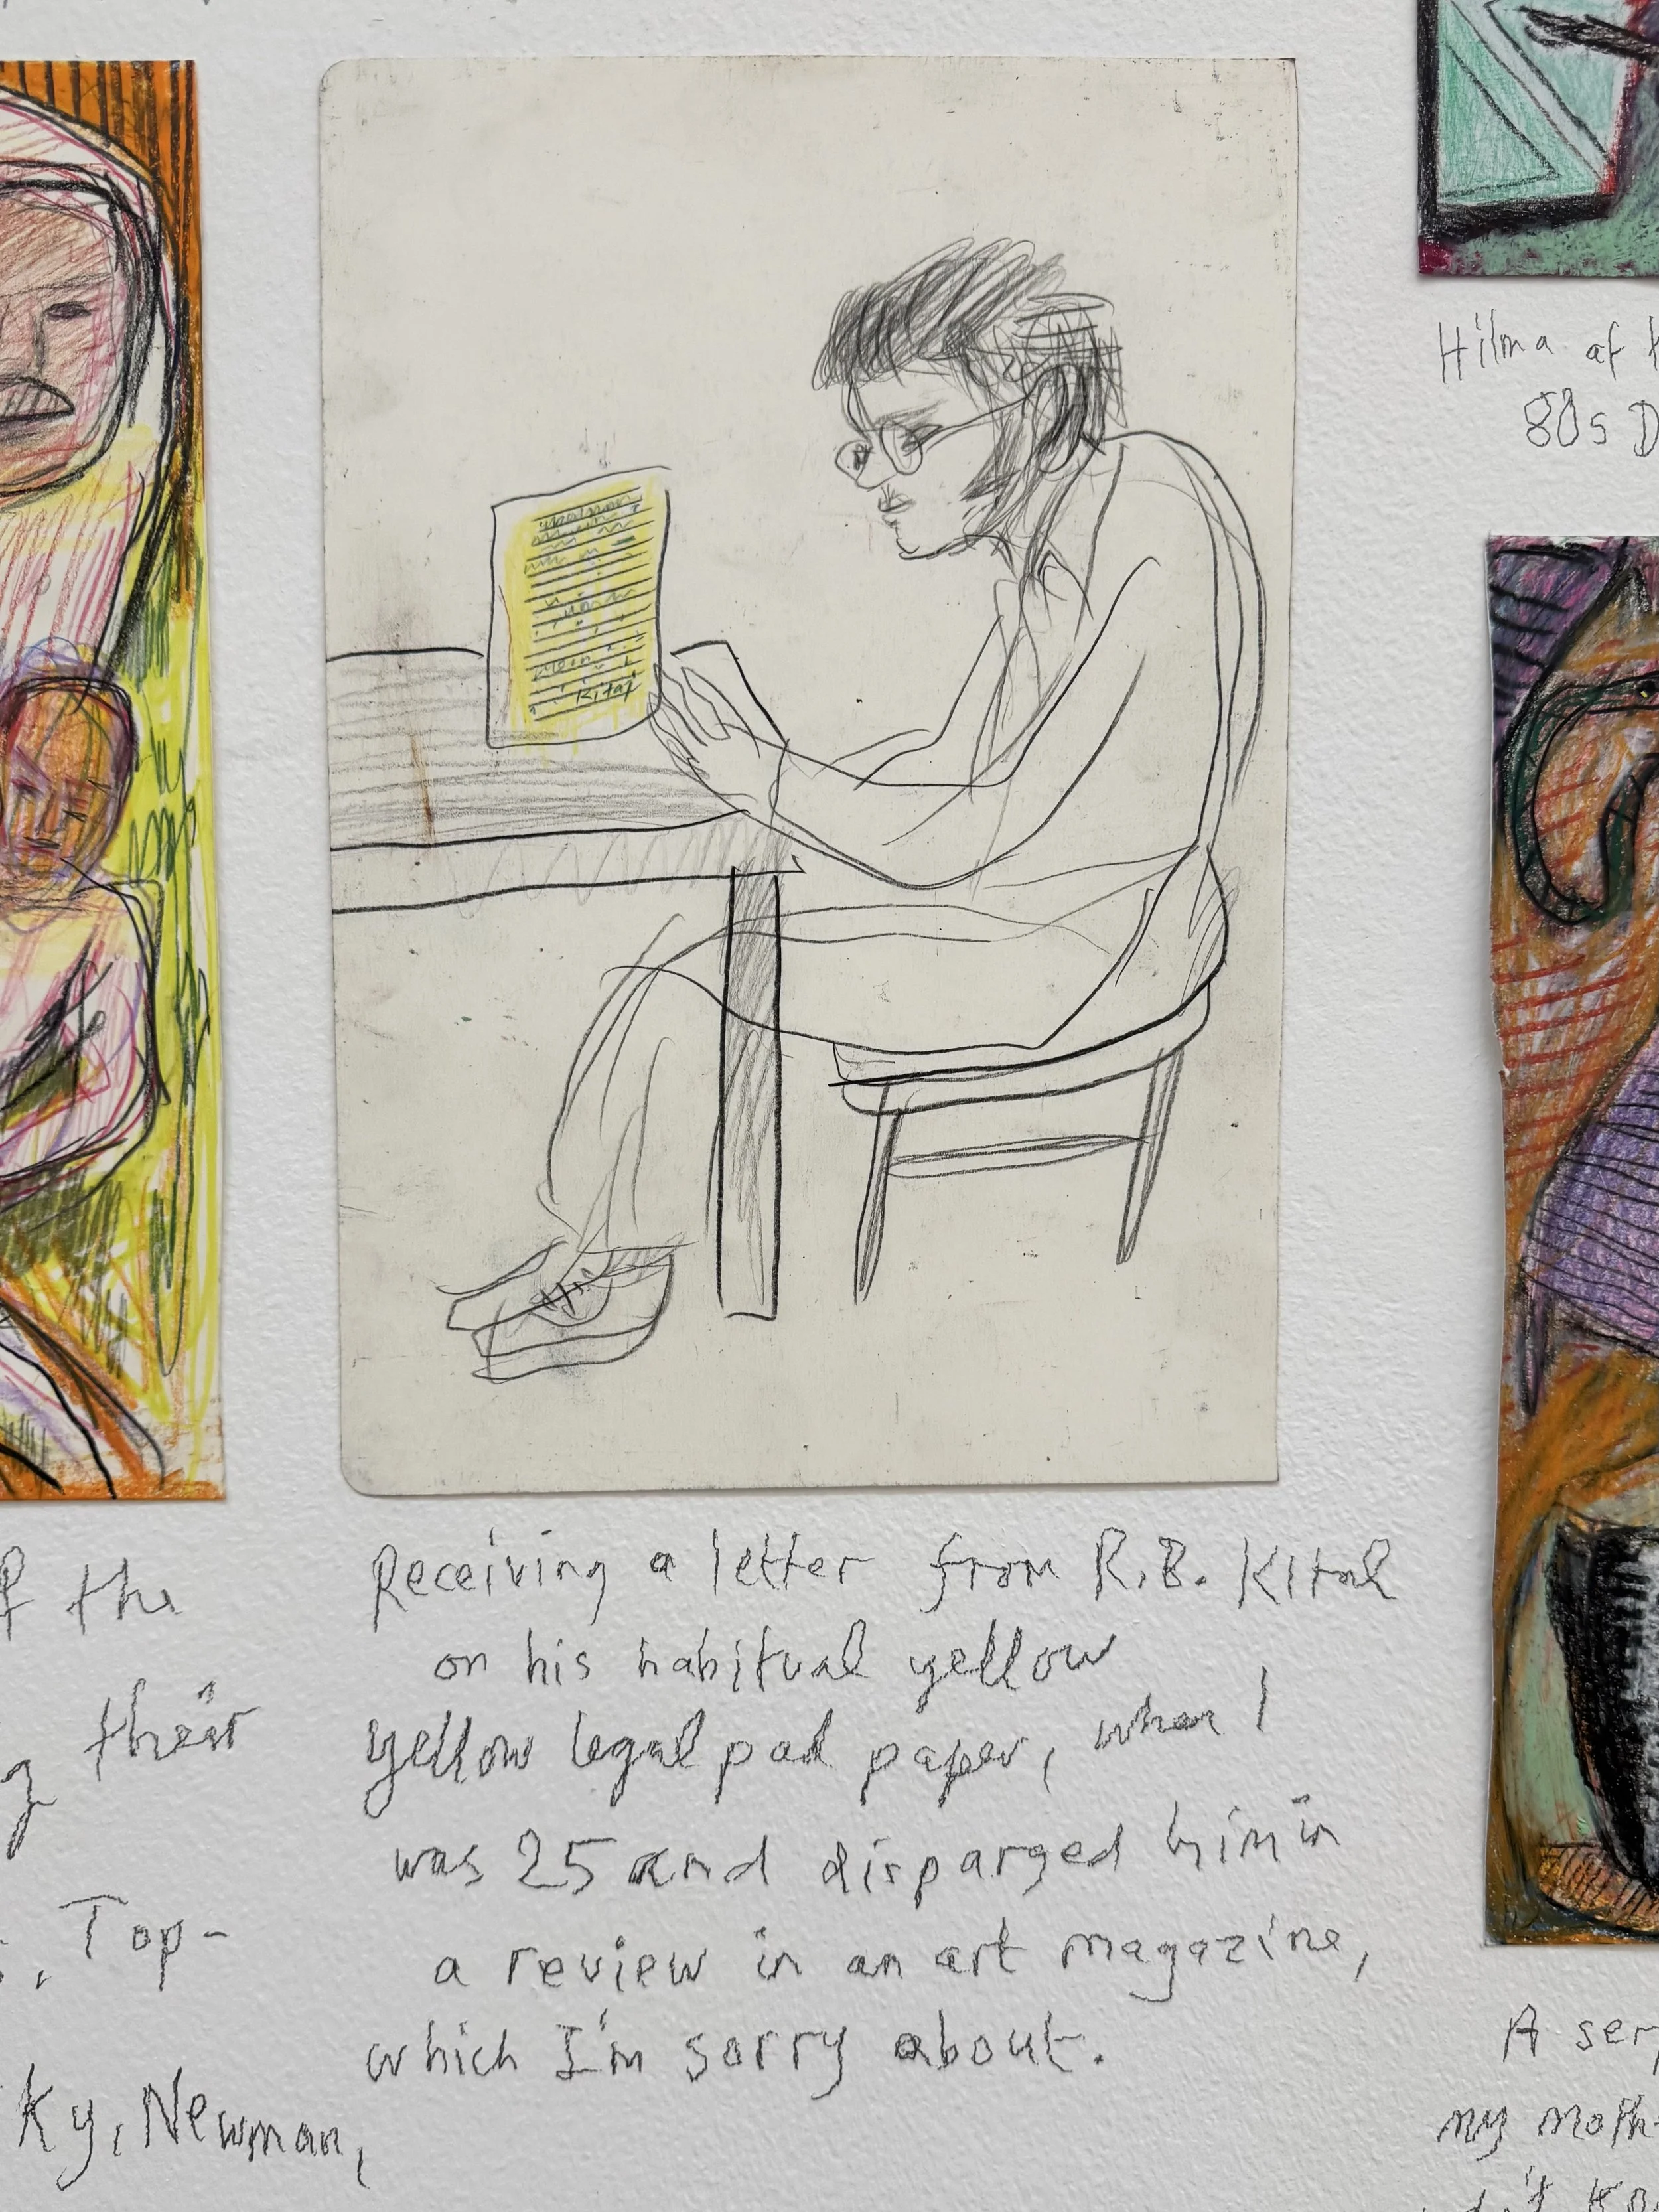 Receiving a letter from R.B. Kitaj
on his habitual yellow
yellow legal pad paper, when I
was 25 and disparged him in
a review in an art magazine,
which I'm sorry about.
Kitaj
the
their
Top-
Ky, Newman,
Hilma af
80s D
A ser
my moth